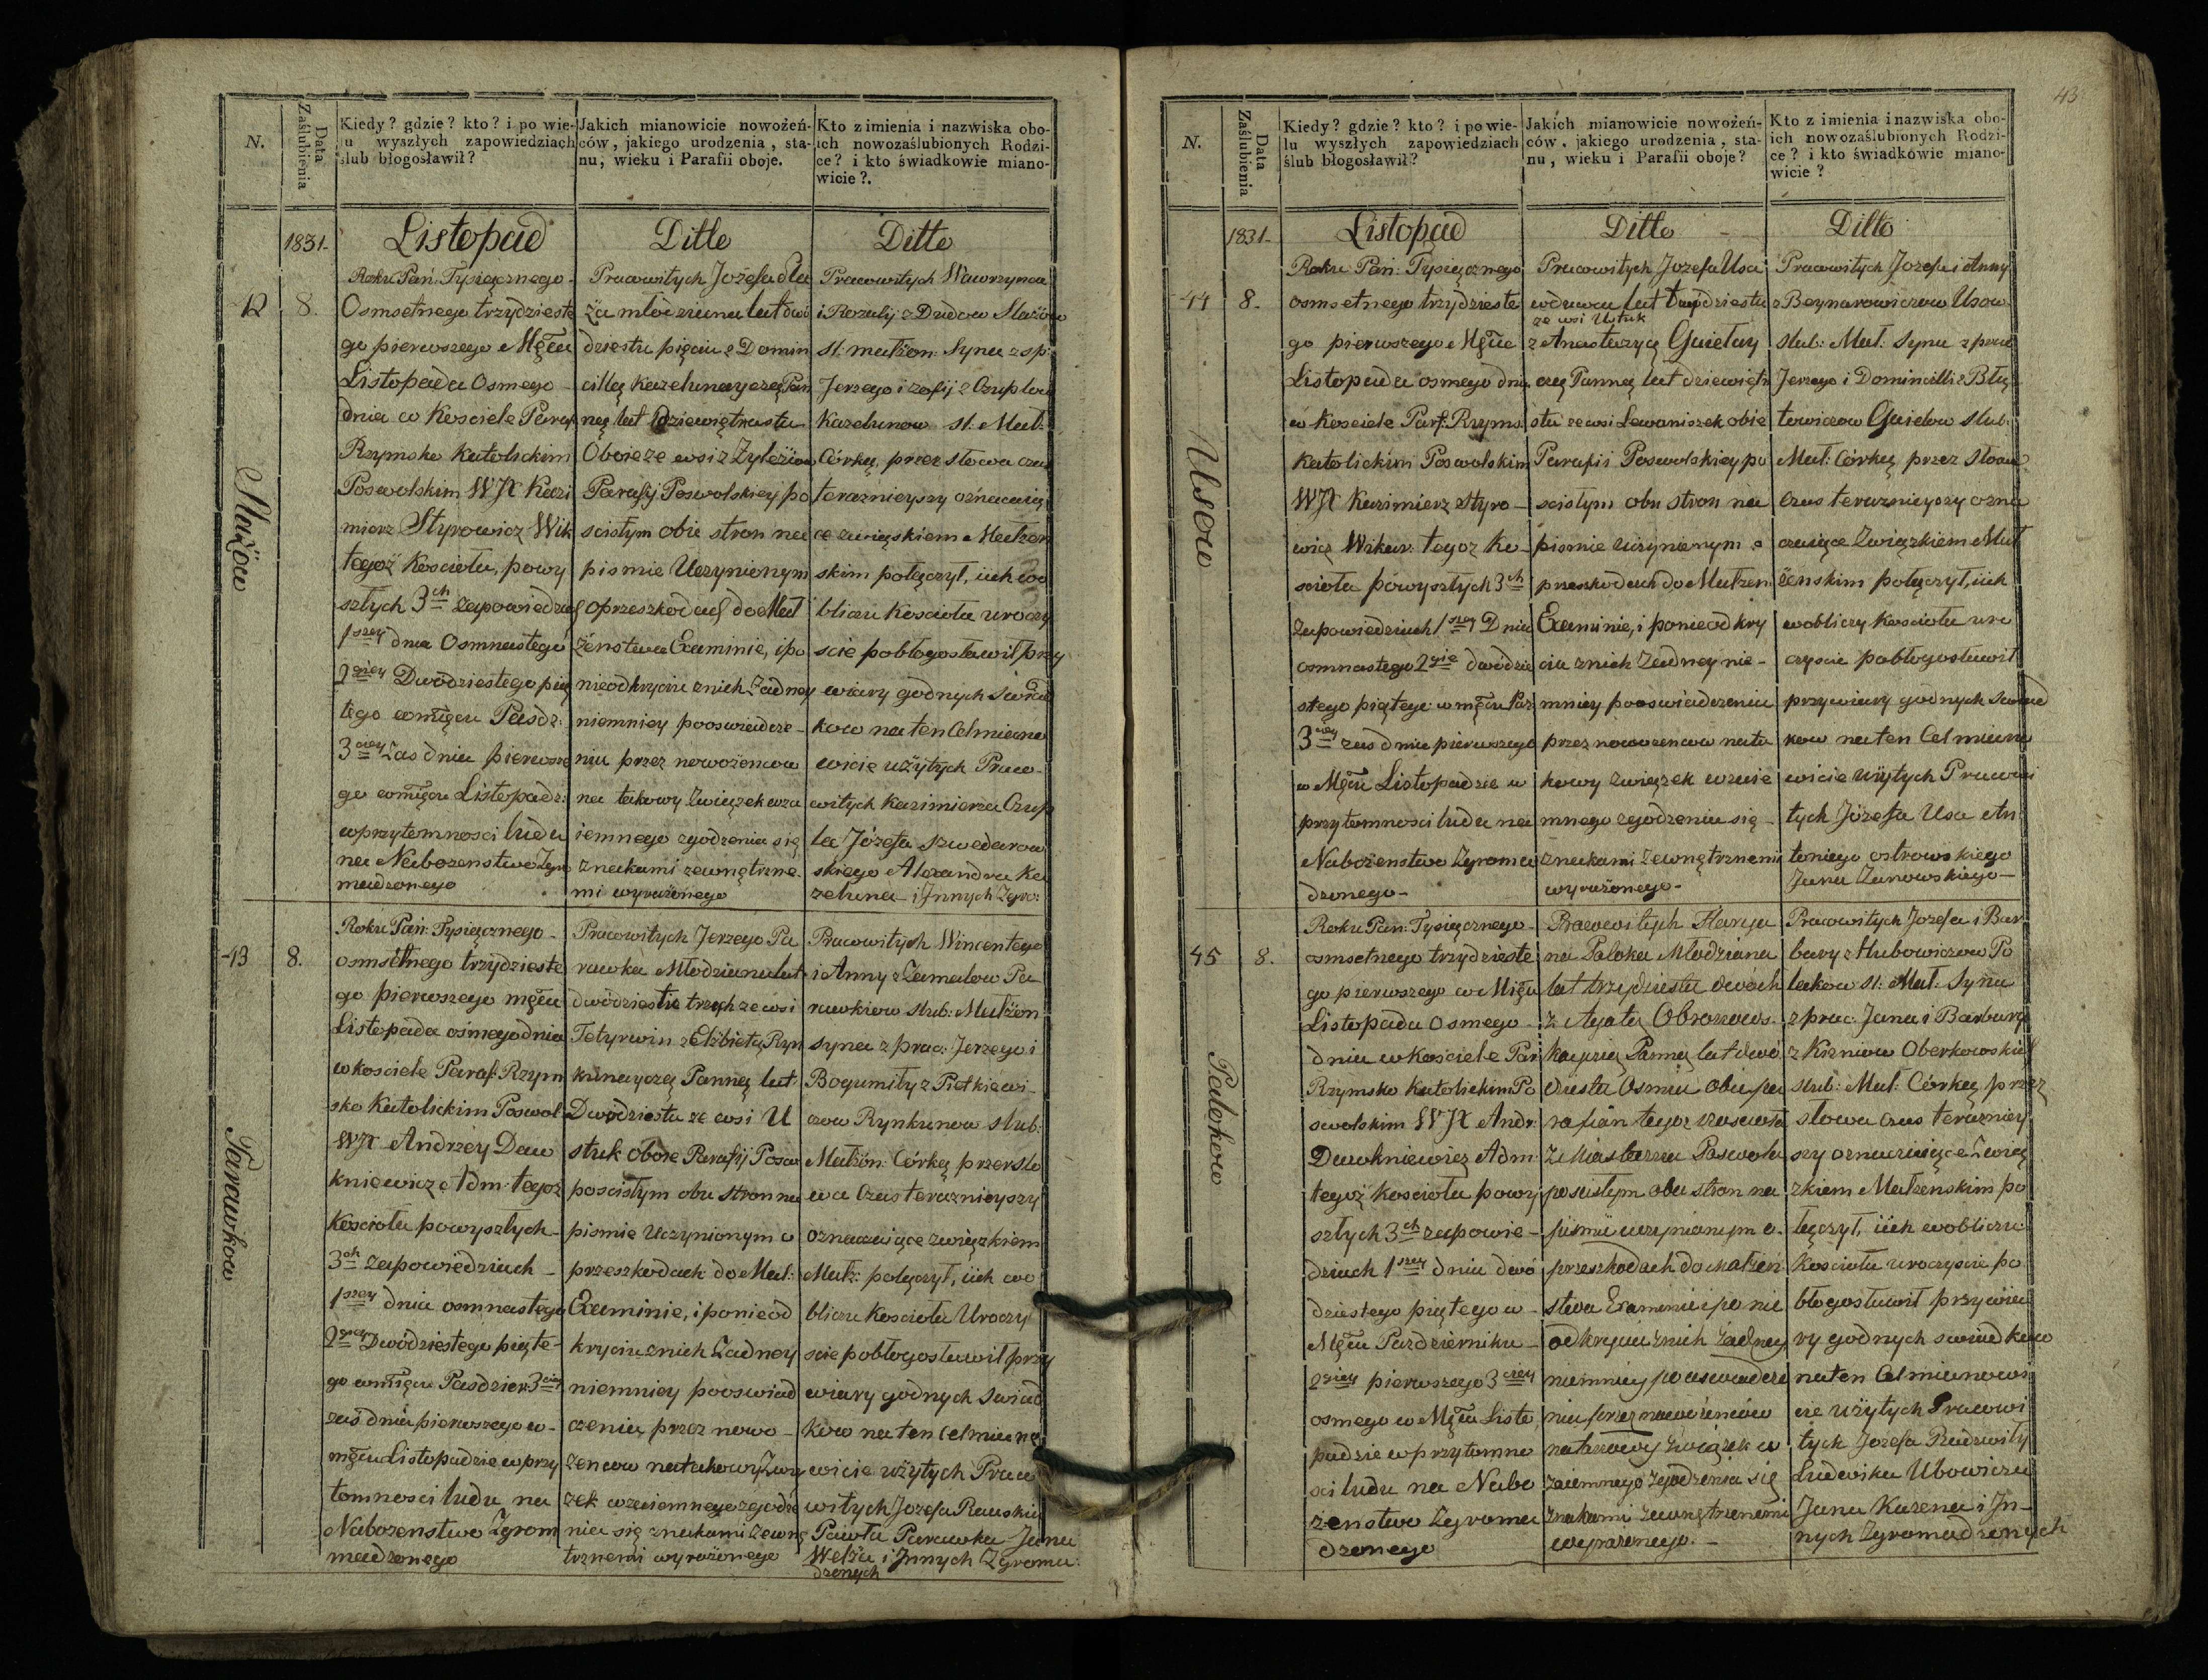 N.
Data Zaślubienia
Kiedy? gdzie? kto? i po wie-
lu wyszłych zapowiedziach
ślub błogosławił?
Jakich mianowicie nowożeń-
ców, jakiego urodzenia, sta-
nu, wieku i Parafii oboje.
Kto z imienia i nazwiska obo-
ich nowozaślubionych Rodzi-
ce? i kto świadkowie miano-
wicie?.
1831.
Listopad
Ditto
Ditto
12
8.
Roku Pań: Tysięcznego
Osmsetnego trzydzieste
go pierwszego Męca
Listopada Osmego
dnia w Kosciele Paraf
Rzymsko Katolickim
Poswolskim WJX Kazi
mierz Styrowicz Wik
tegoż Kosciołu, powy
szłych 3ch zapowiedziach
1szey dnia Osmnastego
2giey Dwódziestego pią
tego w męcu Pasdz:
3ciey zas dnia pierwsze
go w męcu Listopadz:
w przytomnosci ludu
na Nabozenstwo Zgro
madzonego
Pracowitych Jozefa Sła
ża młodziana lat dwó
dziestu pięciu z Domin
cillą Kazelunayczą Pan
ną lat Dziewiętnastu
Oboie ze wsi z Zyleżiow
Parafij Poswolskiey po
scisłym obu stron na
pismie Uczynionym
o przeszkodach do Mał
żenstwa Examinie, i po
nieodkryciu znich Zadney
niemniey pooswiadcze-
niu przez nowożencow
na takowy Zwiąsek wza
iemnego zgodzenia się
znakami zewnętrzne
mi wyrażonego
Pracowitych Wawrzynca
i Rozalij z Dudow Słażow
sł: małżon: Syna z sp:
Jerzego i zofij z Czuplow
Kazelunow sł: Mał:
Córką, przez słowa czas
teraznieyszy oznacaią
ce zwiąskiem Małżen
skim połączył, iich wo
bliczu Kosciołu uroczy
scie pobłogosławił przy
wiary godnych świad
kow na ten Cel miano
wicie użytych Praco-
witych Kazimierza Czup
la Józefa Szwedarow
skiego Alexandra Ka
zeluna i Jnnych Zgro:
Słażow
13
8.
Roku Pań: Tysięcznego
osmsetnego trzydzieste
go pierwszego męca
Listopada osmego dnia
w kosciele Paraf: Rzym
sko Katolickim Poswol
WJX Andrzey Daw
kniewicz Adm: tegoż
Kosciołu powyszłych
3ch Zapowiedziach
1szey dnia osmnastego
2giey Dwódziestego piąte-
go w męcu Pasdzier: 3ciey
zaś dnia pierwszego w
męcu Listopadzie w przy
tomnosci ludu na
Nabozenstwo Zgrom
madzonego
Pracowitych Jerzego Pa
rawka Młodziana lat
dwódziestu trzech ze wsi
Tetyrwin z Elżbietą Ryn
kunayczą Panną lat
Dwódziestu ze wsi U
stuk oboie Parafij Posw
po scisłym obu stron na
pismie Uczynionym o
przeszkodach do Mał:
Examinie, i ponieod
kryciu znich Zadney
niemniey pooswiad
czeniu przez nowo-
żencow na takowy Zwią
zek wzaiemnego zgodze
nia się znakami zewnę
trznemi wyrażonego
Pracowitych Wincentego
i Anny z Zamalow Pa
rawkiow slub: Małżon
syna z prac: Jerzego i
Bogumiły z Pietkiewi-
czow Rynkunow slub:
Małżon: Córką przez sło
wa Czas teraznieyszy
oznaczaiące zwiąskiem
Małż: połączył, iich wo
bliczu Kosciołu Uroczy
scie pobłogosławił przy
wiary godnych swiad
kow na ten cel miano
wicie użytych Praco
witych Jozefa Rauskie
Pawła Parawka Jana
Welża i Jnnych Zgroma
dzonych
Parawkow
43
N.
Data Zaślubienia
Kiedy? gdzie? kto? i po wie-
lu wyszłych zapowiedziach
ślub błogosławił?
Jakich mianowicie nowożeń-
ców, jakiego urodzenia, sta-
nu, wieku i Parafii oboje?
Kto z imienia i nazwiska obo-
ich nowozaślubionych Rodzi-
ce? i kto świadkowie miano-
wicie?
1831.
Listopad
Ditto
Ditto
44
8.
Roku Pań: Tysięcznego
osmsetnego trzydzieste
go pierwszego Męca
Listopada osmego dnia
w Kosciele Parf: Rzyms:
Katolickim Poswolskim
WJX Kazimierz Styro-
wicz Wikar: tegoz Ko-
scioła powyszłych 3ch
zapowiedziach 1szey Dnia
osmnastego 2giey dwódzie
stego piątego w męcu Paz
3ciey zas dnia pierwszego
w Męcu Listopadzie w
przytomnosci ludu na
Nabożenstwo Zgroma
dzonego-
Pracowitych Jozefa Usa
wdowca lat trzydziestu
ze wsi Ustuk
z Anastazyą Gaielay
czą Panną lat dziewiętn
stu ze wsi Lewaniszek obie
Parafii Poswolskiey po
scisłym obu stron na
pismie uczynionym o
przeszkodach do Małżen:
Examinie, i ponieodkry
ciu znich Zadney nie-
mniey pooswiadczeniu
przez nowozencow na ta
kowy związek wzaie
mnego zgodzenia się
znakami Zewnętrznemi
wyrażonego-
Pracowitych Jozefa i Anny
z Beynarowiczow Usow
slub: Mał: syna z prac
Jerzego i Domincilli z Błą
towiczow Gaielow slub:
Mał: Córką przez słowa
Czas teraznieyszy ozna
czaiące Związkiem Mał
żenskim połączył, iich
wobliczu Kosciołu uro
czyscie pobłogosławił
przy wiary godnych swiad
kow na ten Cel miano
wicie użytych Pracowi
tych Józefa Usa An
toniego ostrowskiego
Jana Zanowskiego-
Usow
45
8.
Roku Pan: Tysięcznego
osmsetnego trzydzieste
go pierwszego w Mięcu
Listopadu Osmego
dnia w Kosciele Par
Rzymsko KatolickimPo
swolskim WJX Andr:
Dawkniewicz Adm:
tegoż Kosciołu powy
szłych 3ch zapowie-
dziach 1szey dnia dwó
dziestego piątego w
Męcu Pazdzierniku
2giey pierwszego 3ciey
osmego w Męcu Listo
padzie w przytomno
sci ludu na Nabo
zenstwo Zgroma
dzonego
Pracowitych Florya
na Paloka Młodziana
lat trzydziestu dwóch
z Agatą Obrozows-
kayczą Panną lat dwó
dziestu Osmiu obu pa
rafian tegoz
z Miasteczka Poswola
po scisłym obu stron na
pismie uczynionym o
przeszkodach do małżeń
stwa Examinie i po nie
odkryciu znich żadney
niemniey pooswiadcze
niu przez nowożeńców
na takowy związek w
zaiemnego zgodzenia się
znakami zewnętrznemi
wyrażonego.-
Pracowitych Jozefa i Bar
bary z Hubowiczow Pa
lokow sł: Mał: Syna
z prac: Jana i Barbary
z Kizniow Oberkowskich
slub: Mał: Córką przez
słowa czas teraźniey
szy oznaczaiące Zwią
zkiem Małżenskim po
łączył, iich wobliczu
Kosciołu uroczyscie po
błogosławił przy wia
ry godnych swiadkow
na ten Cel mianowi
cie użytych Pracowi
tych Jozefa Radziwiły
Ludwika Ubowicza
Jana Kazena i Jn-
nych Zgromadzonych
Palokow